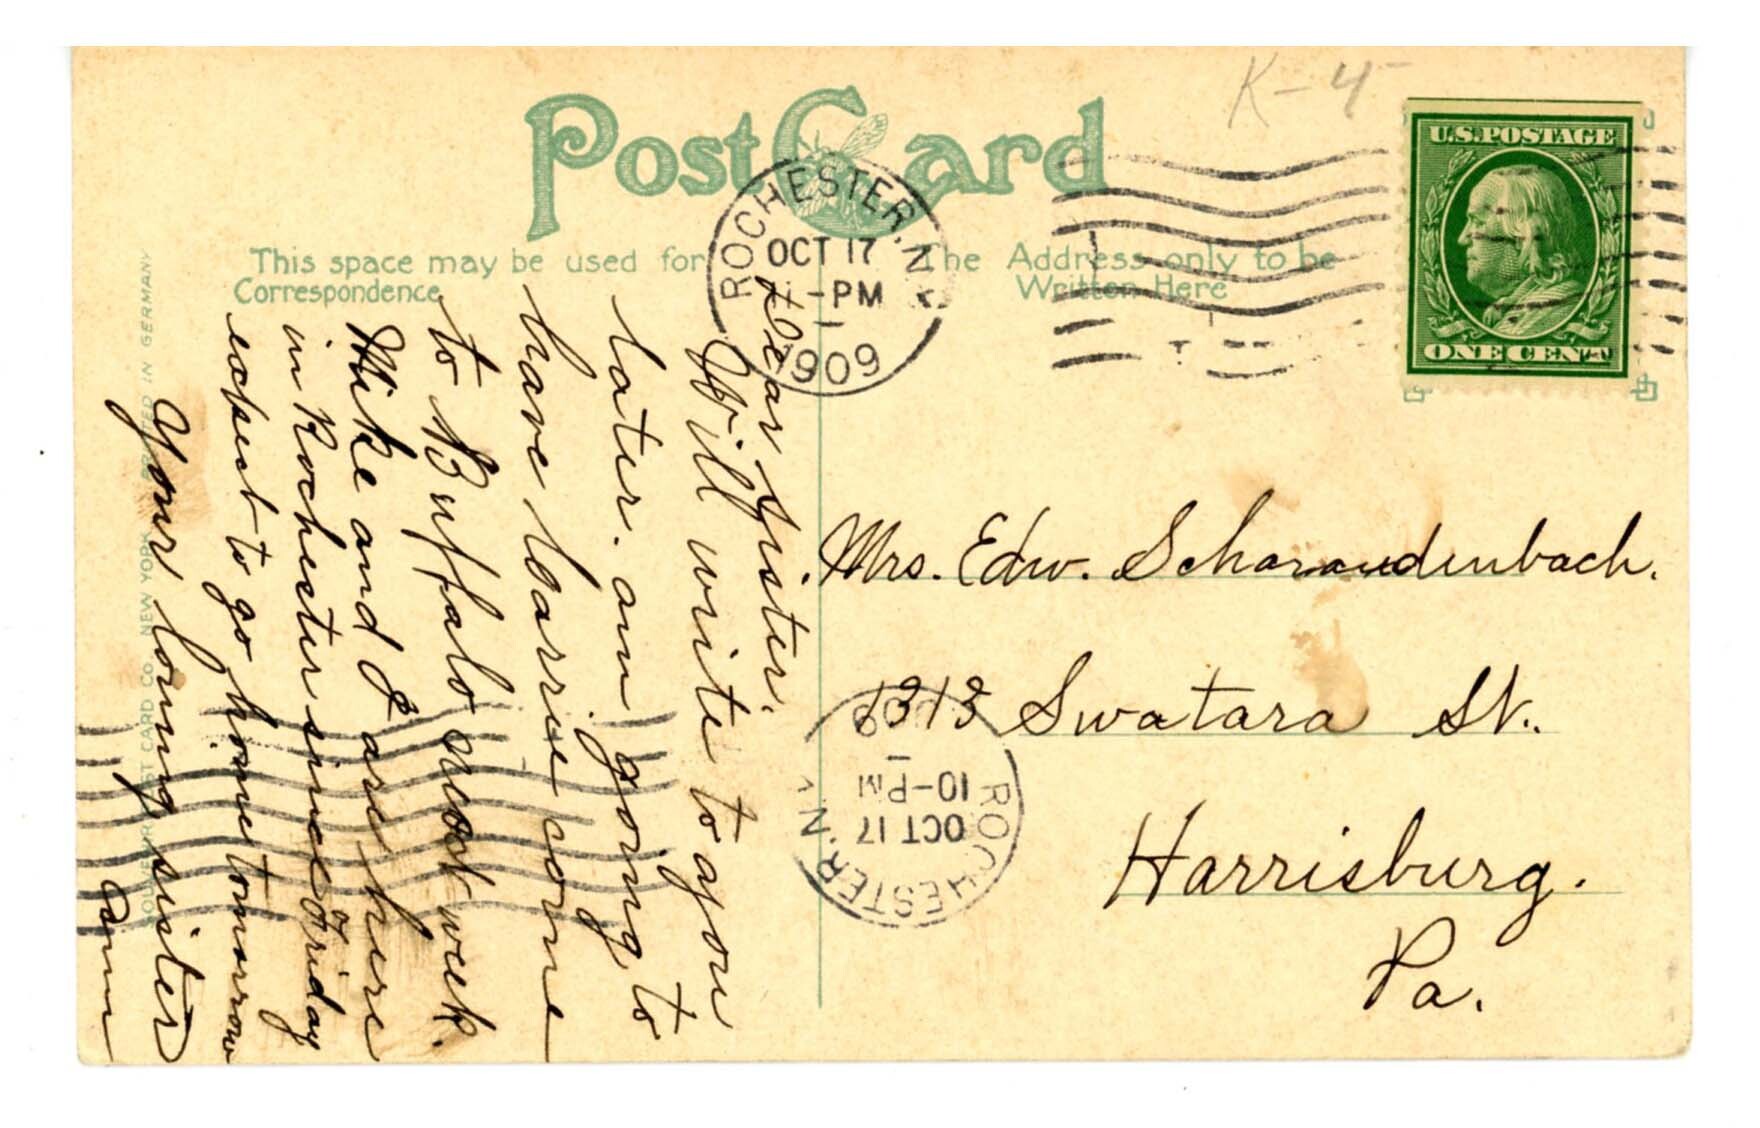 K-4
Post Card
U.S.POSTAGE
ONE CENT
This space may be used for
Correspondence
The Address only to be
Written Here
ROCHESTER, N.Y.
OCT 17
-PM
1909
Dear Sister.
Will write to you
later. am going to
have Carrie come
to Buffalo next week.
Mike and I are here
in Rochester since Friday
expect to go home tomorrow
Your loving sister
Ann
Mrs. Edw. Scharaudenbach.
1313 Swatara St.
Harrisburg.
Pa.
ROCHESTER, N.
OCT 17
10-PM
POST CARD CO. NEW YORK. PRINTED IN GERMANY